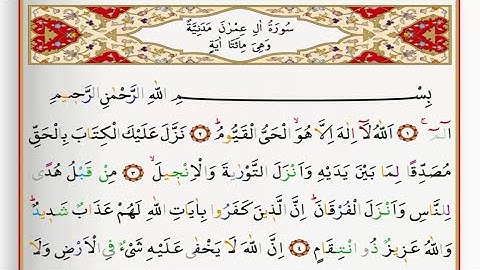 سُورَةُ اٰلِ عِمْرٰنَ مَدَنِيَّةٌ
وَهِيَ مِائَتَا اٰيَةٍ
بِسْمِ اللّٰهِ الرَّحْمٰنِ الرَّح۪يمِ
الٓمٓ ۚ ﴿١﴾ اَللّٰهُ لَٓا اِلٰهَ اِلَّا هُوَۙ الْحَيُّ الْقَيُّومُۜ ﴿٢﴾ نَزَّلَ عَلَيْكَ الْكِتَابَ بِالْحَقِّ
مُصَدِّقًا لِمَا بَيْنَ يَدَيْهِ وَاَنْزَلَ التَّوْرٰيةَ وَالْاِنْج۪يلَۙ ﴿٣﴾ مِنْ قَبْلُ هُدًى
لِلنَّاسِ وَاَنْزَلَ الْفُرْقَانَۜ اِنَّ الَّذ۪ينَ كَفَرُوا بِاٰيَاتِ اللّٰهِ لَهُمْ عَذَابٌ شَد۪يدٌۜ
وَاللّٰهُ عَز۪يزٌ ذُو انْتِقَامٍ ﴿٤﴾ اِنَّ اللّٰهَ لَا يَخْفٰى عَلَيْهِ شَيْءٌ فِي الْاَرْضِ وَلَا